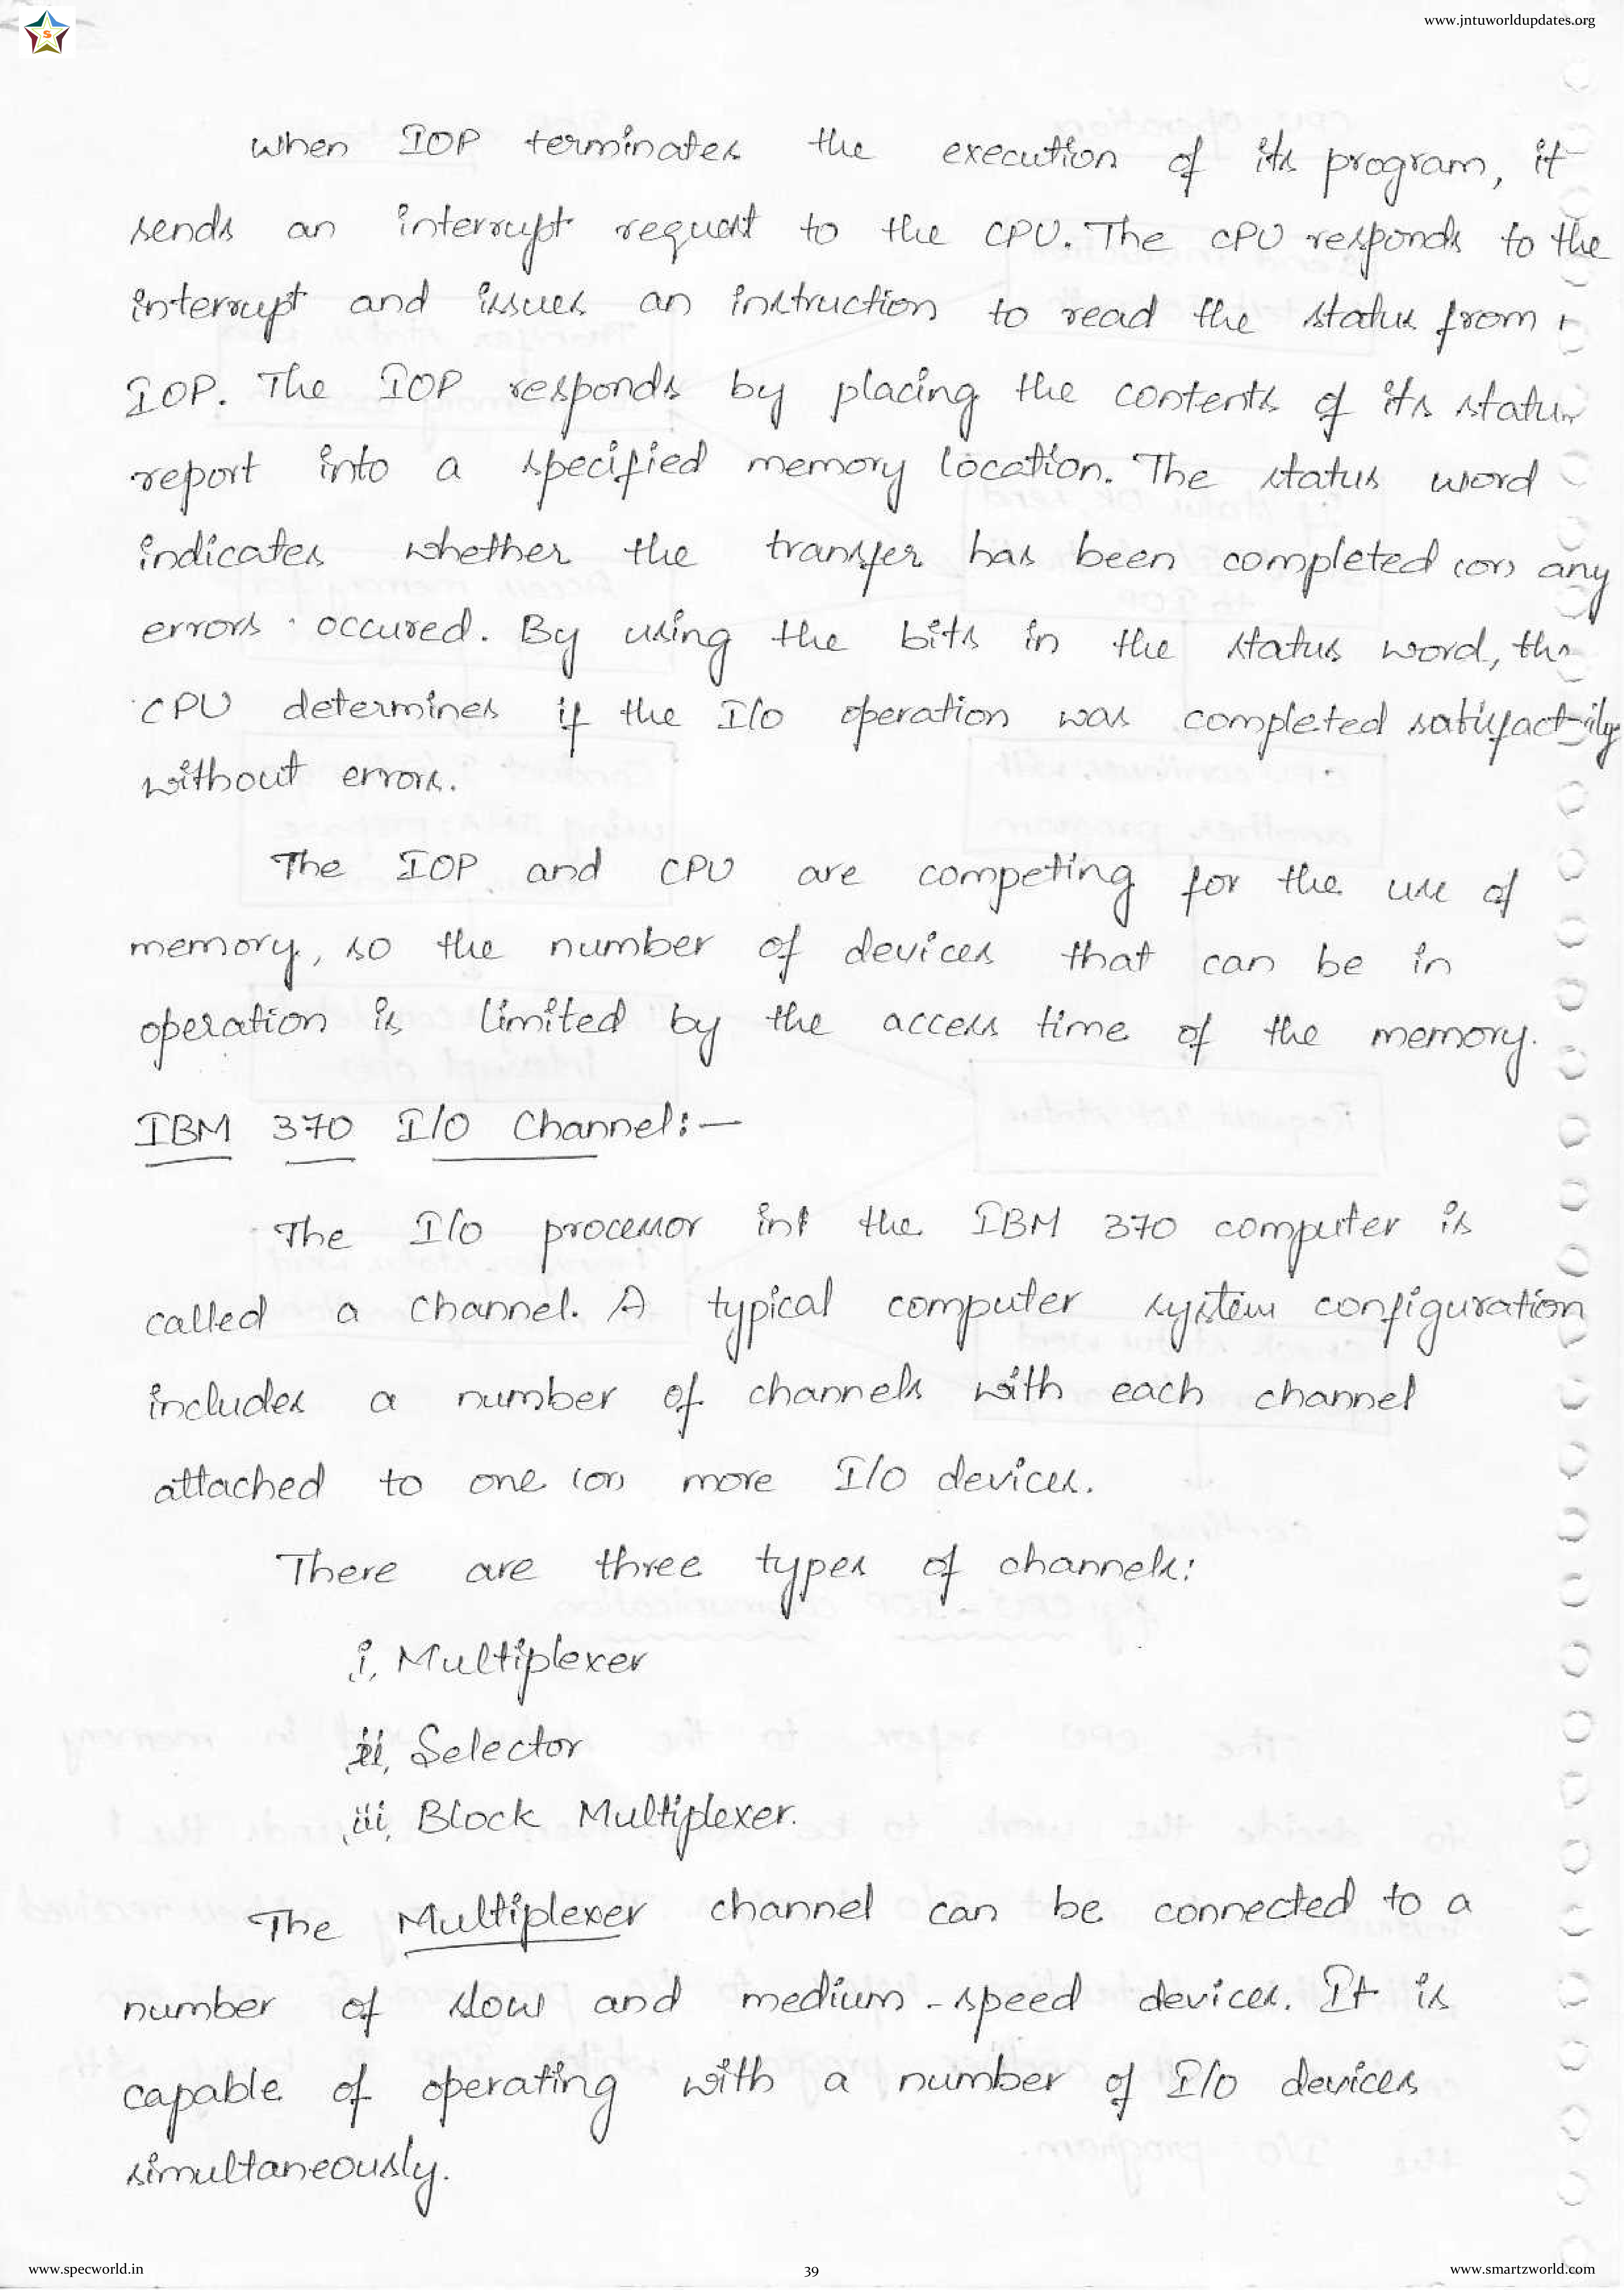 www.jntuworldupdates.org
S
When IOP terminates the execution of its program, it
sends an interrupt request to the CPU. The CPU responds to the
interrupt and issues an instruction to read the status from
IOP. The IOP responds by placing the contents of its status
report into a specified memory location. The status word
indicates whether the transfer has been completed (or) any
errors occured. By using the bits in the status word, the
CPU determines if the I/O operation was completed satisfactorily
without errors.
The IOP and CPU are competing for the use of
memory, so the number of devices that can be in
operation is limited by the access time of the memory.
IBM 370 I/O Channel:—
The I/O processor in the IBM 370 computer is
called a Channel. A typical computer system configuration
includes a number of channels with each channel
attached to one (or) more I/O devices.
There are three types of channels:
i, Multiplexer
ii, Selector
iii, Block Multiplexer.
The Multiplexer channel can be connected to a
number of slow and medium-speed devices. It is
capable of operating with a number of I/O devices
simultaneously.
www.specworld.in
39
www.smartzworld.com